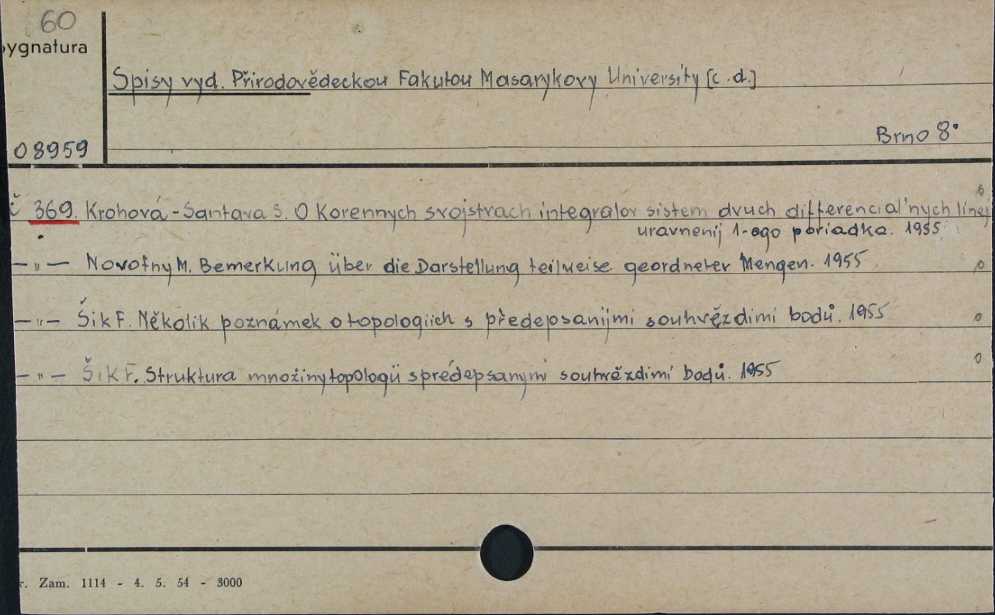 60
ygnatura
Spisy vyd. Přírodovědeckou Fakultou Masarykovy University [c.d.]
08959
Brno 8°
č 369. Krohová-Šantava S. O Korennych svojstvach integralov sistem dvuch differencial'nych linej
uravnenij 1-ogo poriadka. 1955
-"- Novotny M. Bemerkung über die Darstellung teilweise geordneter Mengen. 1955
-"- Šik F. Několik poznámek o topologiich s předepsanijmi souhvězdimi bodů. 1955
-"- Šik F. Struktura množiny topologü s předepsanymi souhvězdimi bodů. 1955
r. Zam. 1114 - 4. 5. 54 - 3000